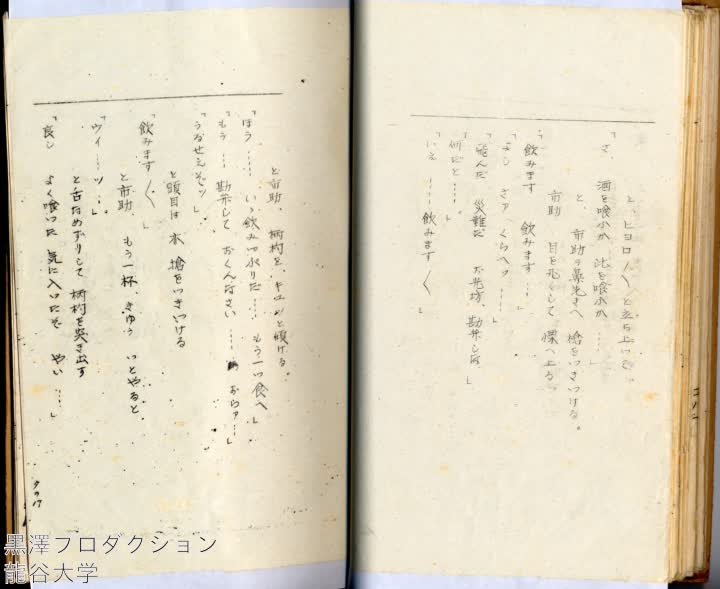 と、ヒヨロ〳〵と立ち上いで
「さ、酒を喰ふか 此を喰ふか……」
と、市助の鼻先きへ 槍をつきつける。
市助 目を丸くして 慄へ上る。
「飲みます 飲みます……」
「よし さァ くらへッ……」
「飛んだ 災難だ お先坊、勘弁しな」
「何だと……」
「いえ……飲みます〳〵」
と市助、柄杓を、キユツと傾ける。
「ほう…… いゝ飲みつぷりだ…… もう一つ食へ」
「もう…… 勘弁して おくんなさい…… おらァ……」
「うるせえぞッ」
と頭目は 木槍をつきつける
「飲みます〳〵」
と市助、もう一杯、きゆうつとやると
「ウイ……ツ…」
と舌なめずりして 柄杓を突き出す
「良し よく喰つた 気に入つたぞ やい……」
黒澤プロダクション
龍谷大学